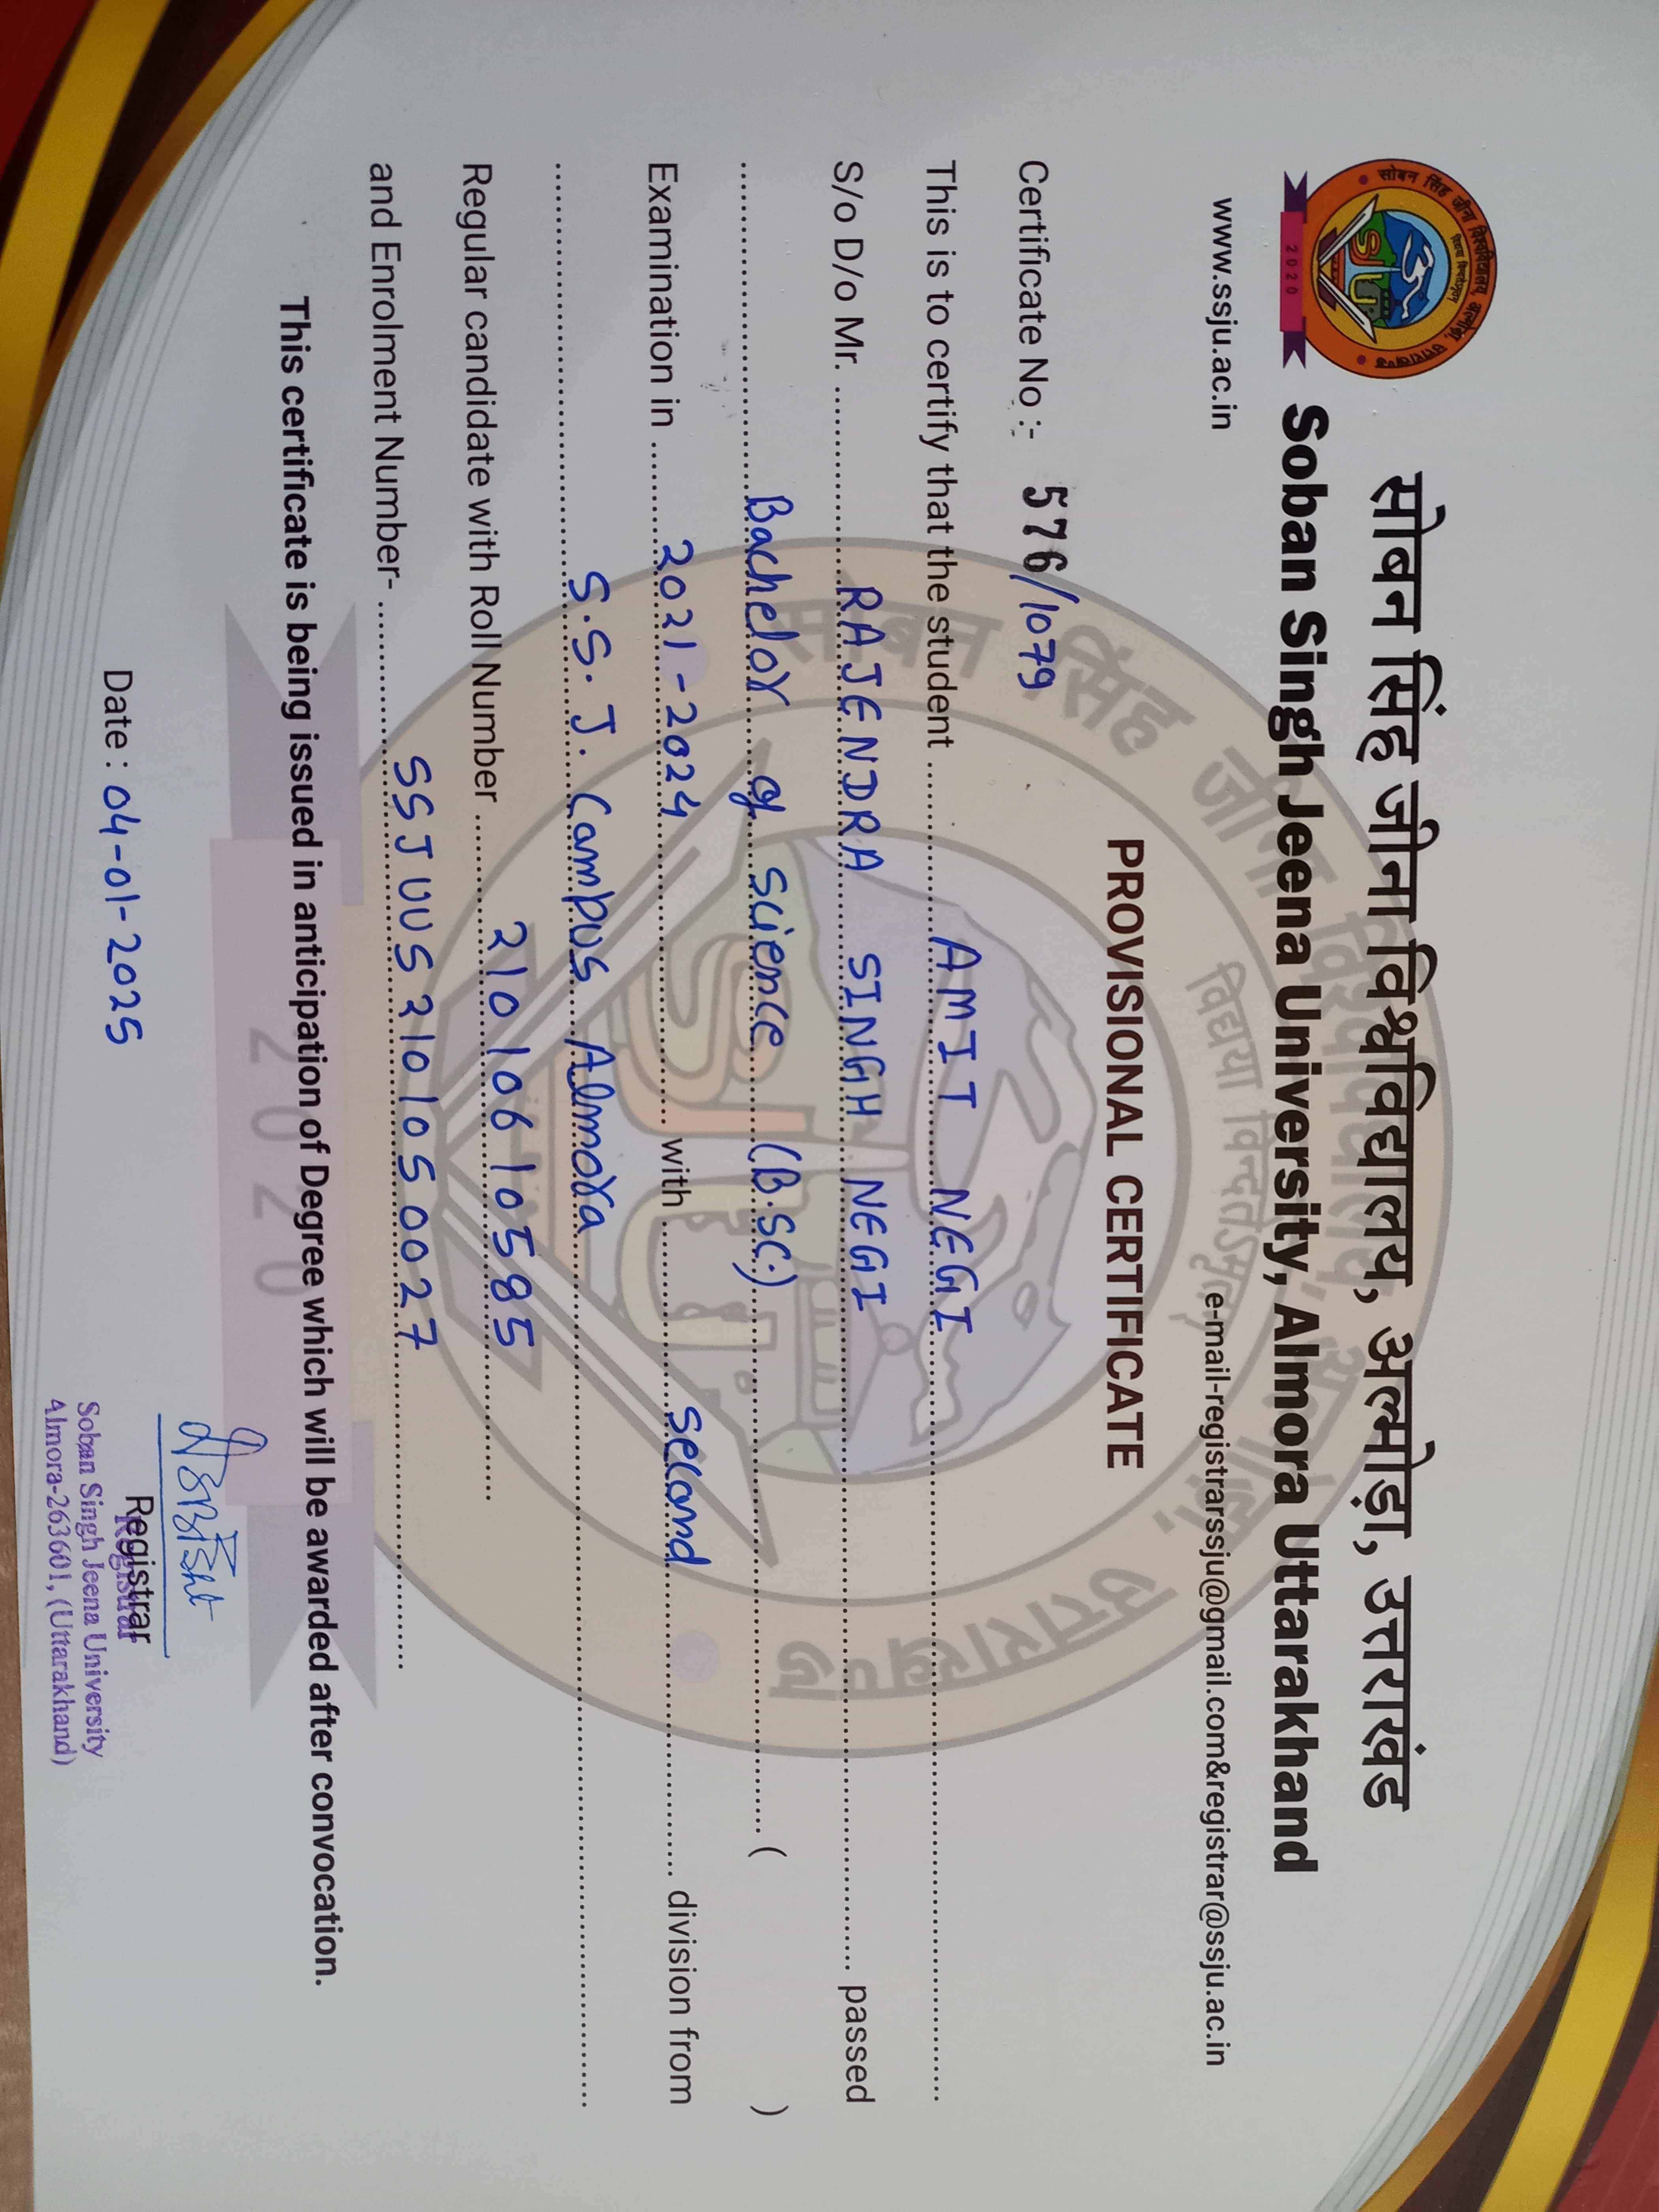 सोबन सिंह जीना विश्वविद्यालय, अल्मोड़ा, उत्तराखंड
Soban Singh Jeena University, Almora Uttarakhand
2020
www.ssju.ac.in
e-mail-registrarssju@gmail.com&registrar@ssju.ac.in
PROVISIONAL CERTIFICATE
Certificate No :- 576/1079
This is to certify that the student AMIT NEGI
S/o D/o Mr. RAJENDRA SINGH NEGI passed
Bachelor of Science (B.SC.) ( )
Examination in 2021-2024 with Second division from
S.S.J. Campus Almora
Regular candidate with Roll Number 21010610585
and Enrolment Number- SSJUUS2101050027
This certificate is being issued in anticipation of Degree which will be awarded after convocation.
Date : 04-01-2025
Registrar
Registrar
Soban Singh Jeena University
Almora-263601, (Uttarakhand)